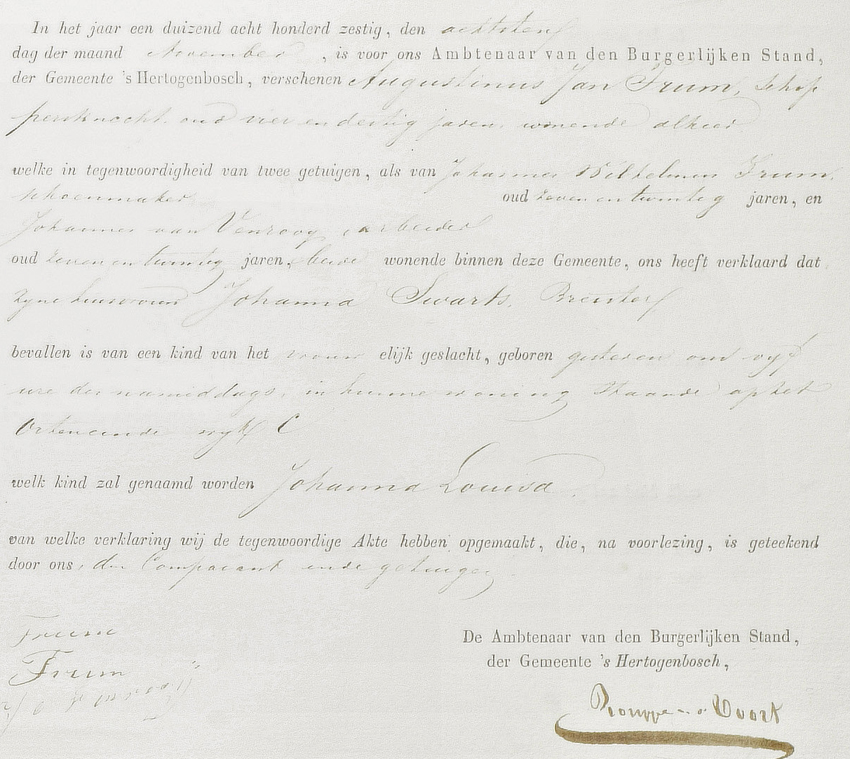 In het jaar een duizend acht honderd zestig, den achtsten
dag der maand November, is voor ons Ambtenaar van den Burgerlijken Stand,
der Gemeente 's Hertogenbosch, verschenen Augustinus Jan Frum, schip
persknecht, oud vier en dertig jaren, wonende alhier
welke in tegenwoordigheid van twee getuigen, als van Johannes Wilhelmus Frum,
schoenmaker oud zeven en twintig jaren, en
Johannes van Venrooy, arbeider
oud zeven en twintig jaren, beide wonende binnen deze Gemeente, ons heeft verklaard dat
zyne huisvrouw Johanna Swarts,
bevallen is van een kind van het vrouwelijk geslacht, geboren gisteren om vyf
ure des namiddags, in hunne woning staande op het
Orteneinde wyk C
welk kind zal genaamd worden Johanna Louisa.
van welke verklaring wij de tegenwoordige Akte hebben opgemaakt, die, na voorlezing, is geteekend
door ons, den Comparant en de getuigen.
Frum
Frum
De Ambtenaar van den Burgerlijken Stand,
der Gemeente 's Hertogenbosch,